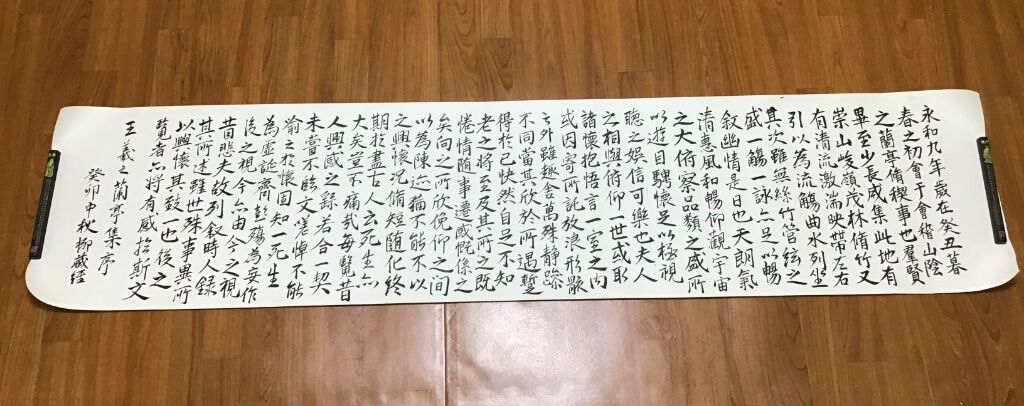 永和九年歲在癸丑暮
春之初會于會稽山陰
之蘭亭脩稧事也羣賢
畢至少長咸集此地有
崇山峻嶺茂林脩竹又
有清流激湍映帶左右
引以為流觴曲水列坐
其次雖無絲竹管弦之
盛一觴一詠亦足以暢
敘幽情是日也天朗氣
清惠風和暢仰觀宇宙
之大俯察品類之盛所
以遊目騁懷足以極視
聽之娛信可樂也夫人
之相與俯仰一世或取
諸懷抱悟言一室之内
或因寄所託放浪形骸
之外雖趣舍萬殊静躁
不同當其欣於所遇蹔
得於己快然自足不知
老之將至及其所之既
惓情随事遷感慨係之
矣向之所欣俛仰之間
以為陳迹猶不能不以
之興懷况脩短随化終
期於盡古人云死生亦
大矣豈不痛哉每覽昔
人興感之䛇若合一契
未嘗不臨文嗟悼不能
喻之於懷固知一死生
為虛誕齊彭殤為妄作
後之視今亦由今之視
昔悲夫故列敘時人錄
其所述雖世殊事異所
以興懷其致一也後之
覽者亦將有感於斯文
王羲之蘭亭集序
癸卯中秋柳